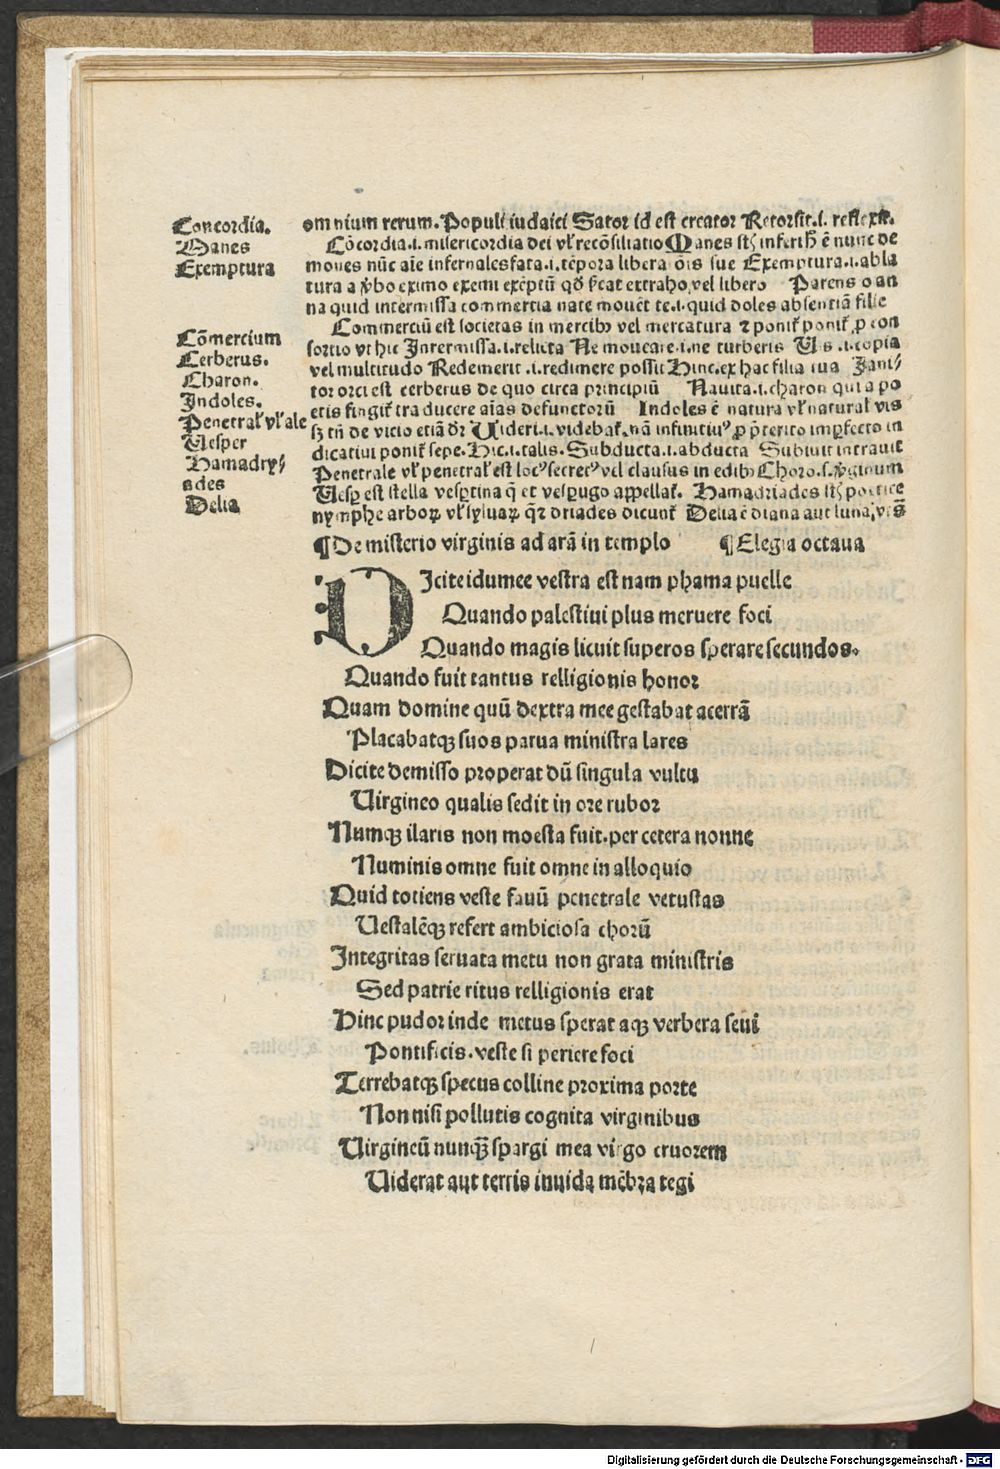 Concordia.
Manes
Exemptura
Cõmercium
Cerberus.
Charon.
Indoles.
Penetral' vl' ale
Vesper
Hamadry/
ades
Delia
omnium rerum. Populi iudaici Sator id est creator Retorsit .i. reflexit.
Cõcordia .i. misericordia dei vl' recõsiliatio Manes st' inferi hẽ nunc de
mones nũc aĩe infernales fata .i. tẽpora libera oĩs sue Exemptura .i. abla
tura a ꝟbo eximo exemi exẽptũ qđ s'cat extraho, vel libero Parens o an
na quid intermissa commertia nate mouẽt te .i. quid doles absentiã filie
Commerciũ est societas in mercibꝫ vel mercatura ⁊ ponit' ponit' ꝓ con
sortio vt hic Intermissa .i. relicta Ne moueare .i. ne turberis Vis .i. copia
vel multitudo Redemerit .i. redimere possit Hinc. ex hac filia tua Iani/
tor orci est cerberus de quo circa principiũ Nauita .i. charon qui a po
etis fingit' traducere aĩas defunctorũ Indoles ẽ natura vl' natural' vis
sꝫ tñ de vicio etiã dr̃ Videri .i. videbat'. nã infinitiu' ꝓ p̃terito imꝑfecto in
dicatiui ponit' sepe. Hic .i. talis. Subducta .i. abducta Subiuit intrauit
Penetrale vl' penetral' est loc' secret' vel clausus in edibꝫ Choro .s. ꝟginum
Vesꝑ est stella vesꝑtina q̃ et vesꝑugo appellat'. Hamadriades st' poetice
nymphe arboꝝ vl' syluaꝝ q̃ driades dicunt' Delia ẽ diana aut luna, vis̃
¶ De misterio virginis ad arã in templo ¶ Elegia octaua
DIcite idumee vestra est nam phama puelle
Quando palestiui plus meruere foci
Quando magis licuit superos sperare secundos.
Quando fuit tantus relligionis honor
Quam domine quũ dextra mee gestabat acerrã
Placabatqꝫ suos parua ministra lares
Dicite demisso properat dũ singula vultu
Virgineo qualis sedit in ore rubor
Numqꝫ ilaris non moesta fuit. per cetera nonne
Numinis omne fuit omne in alloquio
Quid totiens veste fauũ penetrale vetustas
Vestalẽqꝫ refert ambiciosa chorũ
Integritas seruata metu non grata ministris
Sed patrie ritus relligionis erat
Hinc pudor inde metus sperataqꝫ verbera seui
Pontificis. veste si periere foci
Terrebatqꝫ specus colline proxima porte
Non nisi pollutis cognita virginibus
Virgineũ nunqꝫ̃ spargi mea virgo cruorem
Viderat aut terris inuida mẽbra tegi
Digitalisierung gefördert durch die Deutsche Forschungsgemeinschaft - DFG